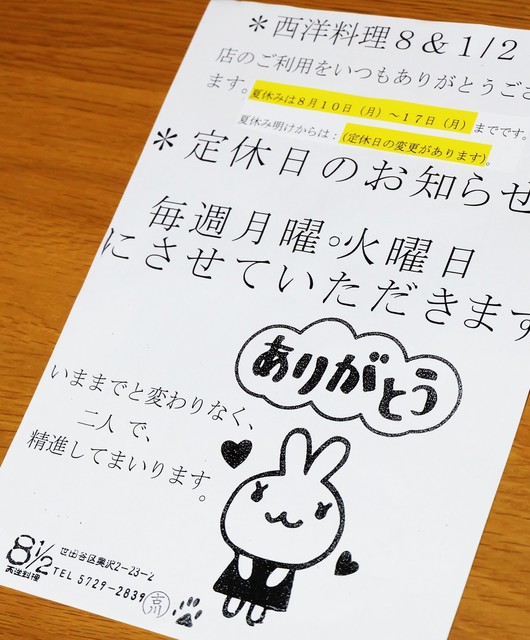 ＊西洋料理８＆１/２
店のご利用をいつもありがとうござ
ます。夏休みは８月１０日（月）～１７日（月）までです。
夏休み明けからは：(定休日の変更があります)。
＊定休日のお知らせ
毎週月曜。火曜日
にさせていただきます
ありがとう
いままでと変わりなく、
二人 で、
精進してまいります。
8 1/2 世田谷区奥沢2-23-2
西洋料理 TEL 5729-2839 古川